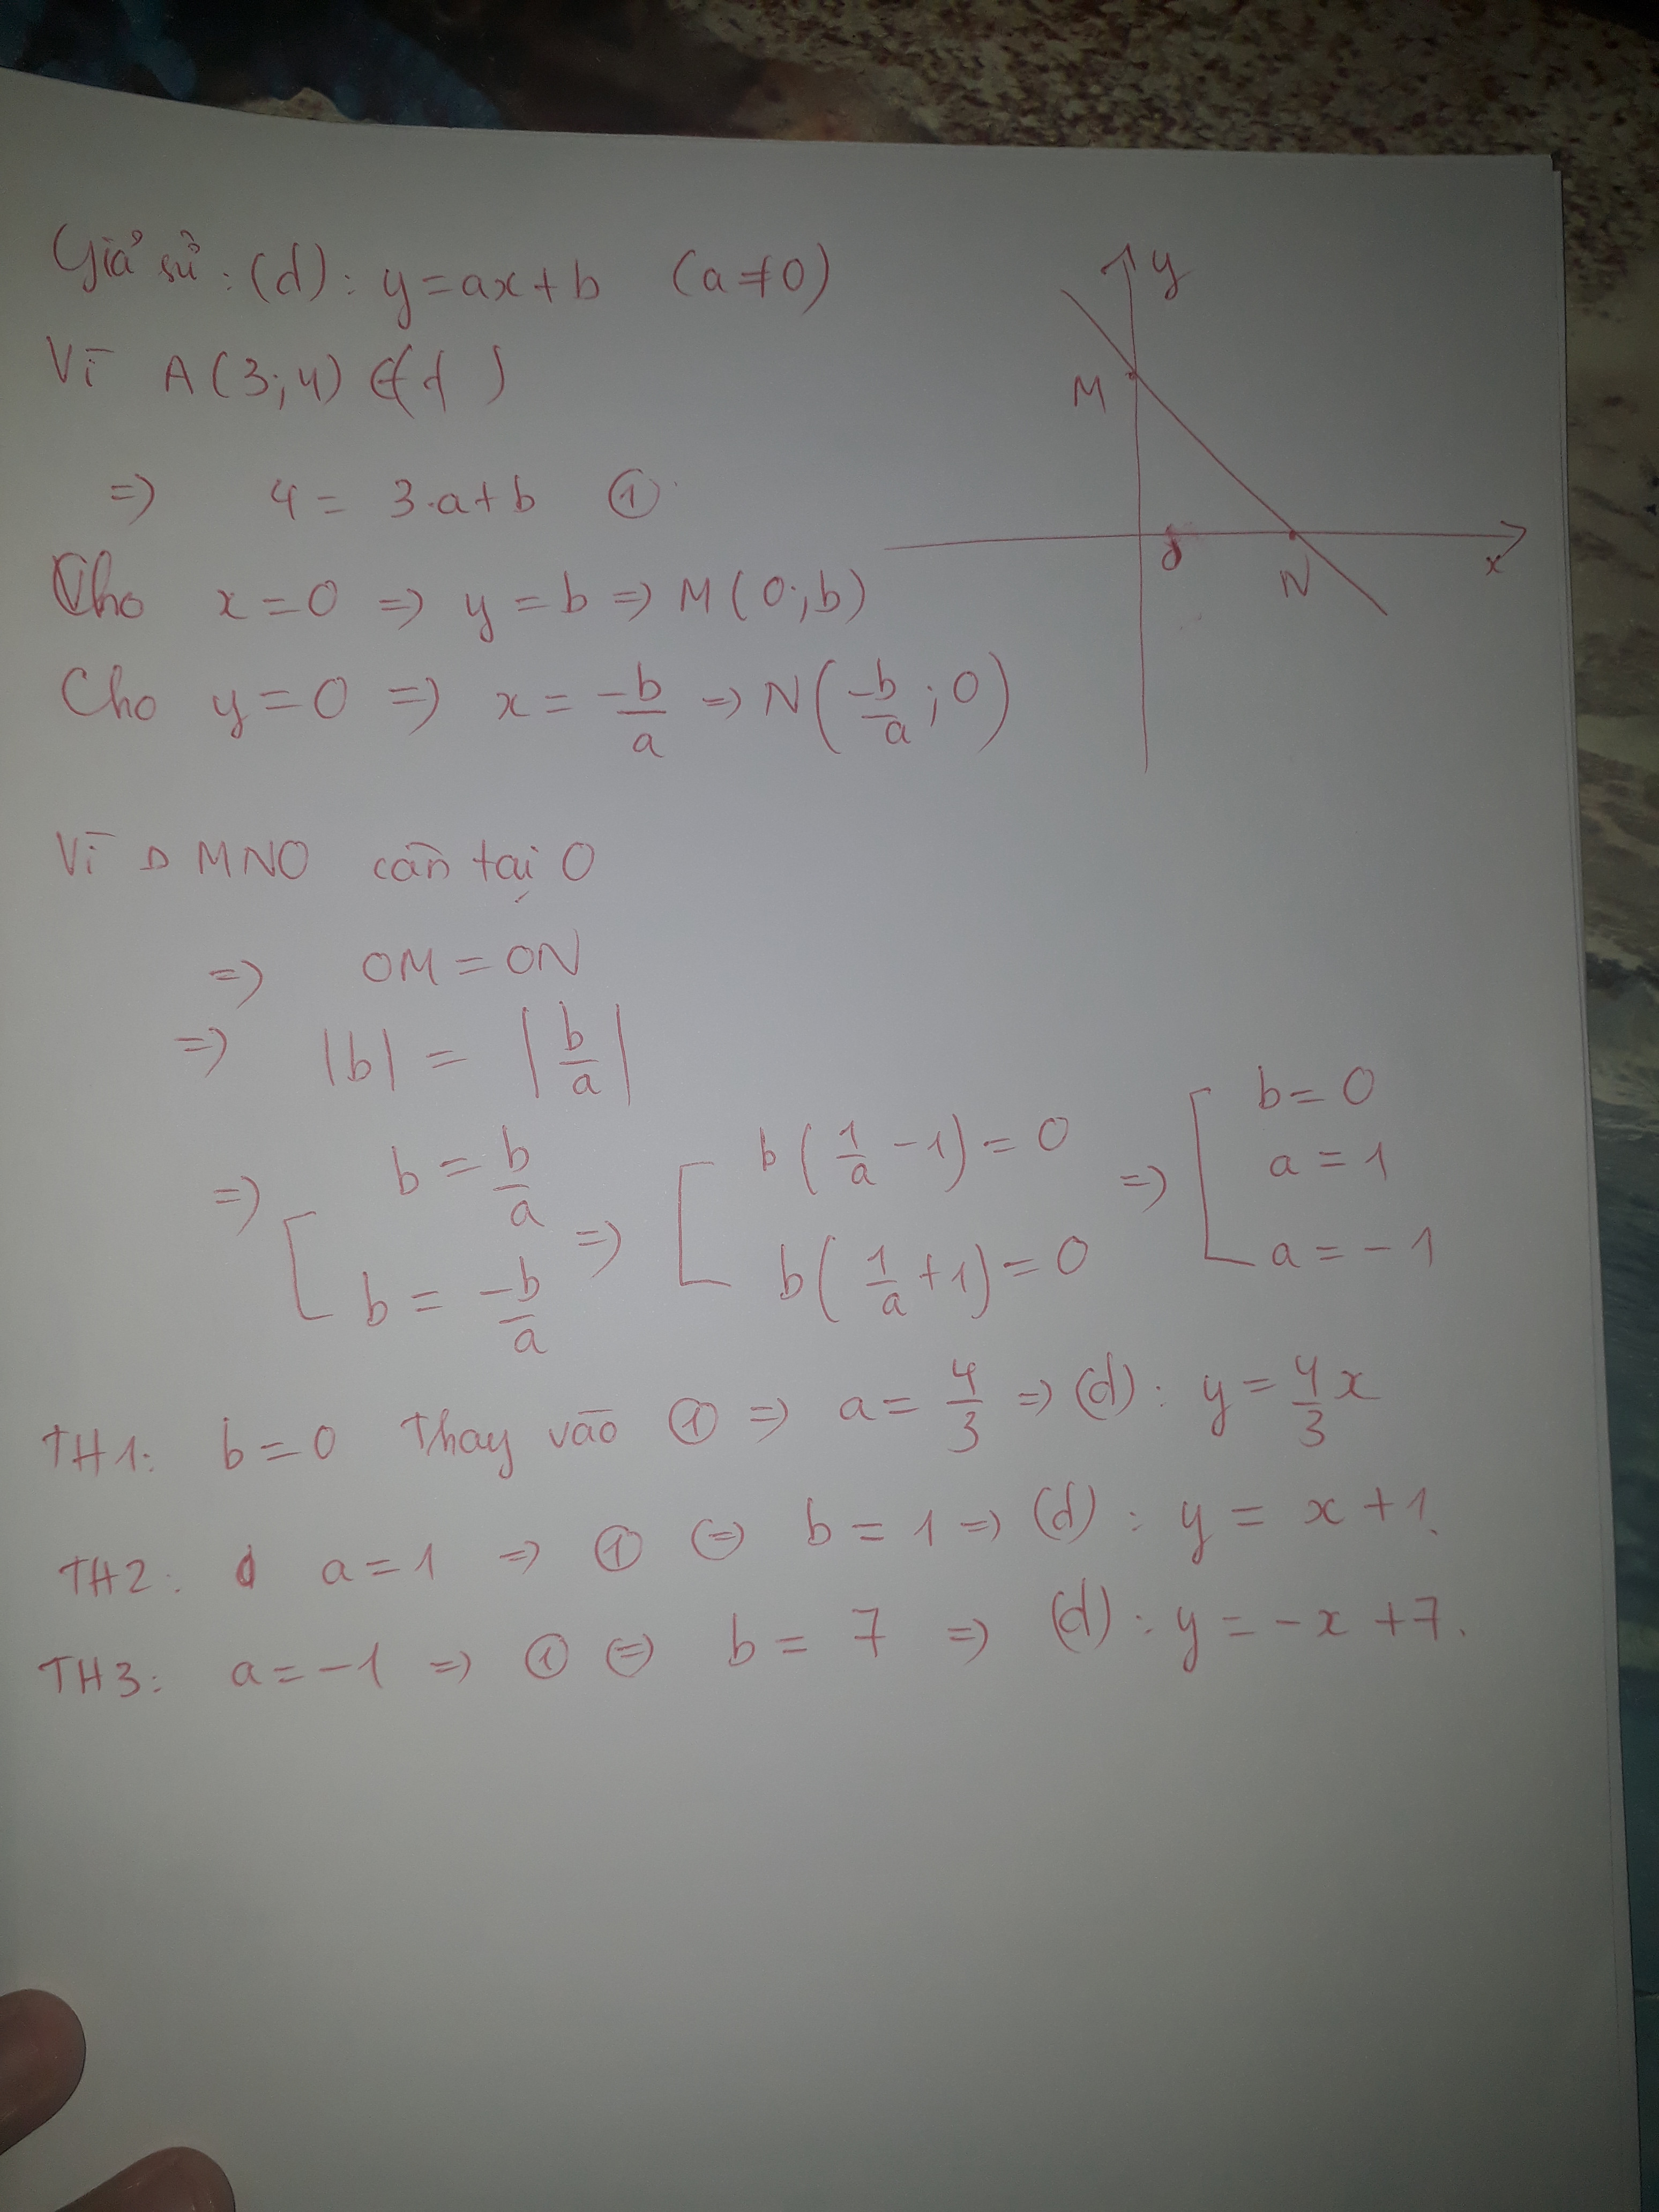 Giả sử: (d): y = ax + b (a ≠ 0)
Vì A(3;4) ∈ (d)
=> 4 = 3.a + b ①
Cho x = 0 => y = b => M(0;b)
Cho y = 0 => x = -b/a => N(-b/a ; 0)
y
M
O
N
x
Vì Δ MNO cân tại O
=> OM = ON
=> |b| = |b/a|
=> [ b = b/a => [ b(1/a - 1) = 0 => [ b = 0
a = 1
b = -b/a b(1/a + 1) = 0 a = -1
TH1: b = 0 Thay vào ① => a = 4/3 => (d): y = 4/3 x
TH2: a = 1 => ① <=> b = 1 => (d): y = x + 1.
TH3: a = -1 => ① <=> b = 7 => (d): y = -x + 7.